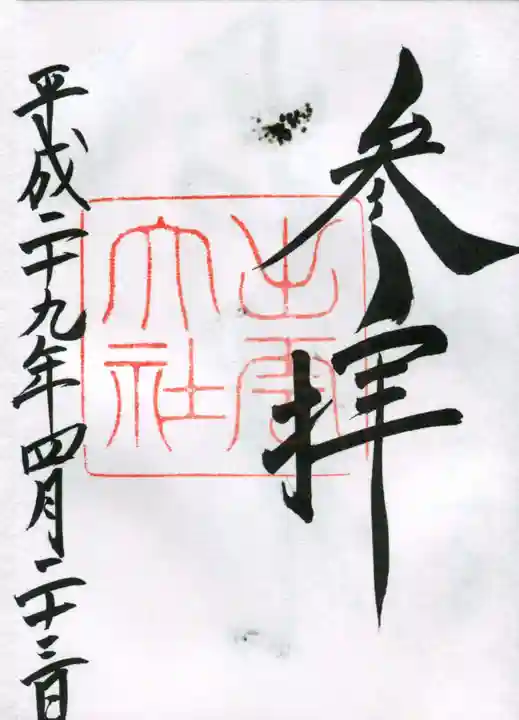 参拝
出雲
大社
平成二十九年四月二十三日